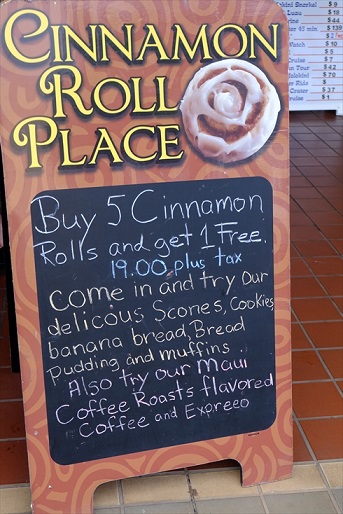 CINNAMON
ROLL
PLACE
Buy 5 Cinnamon
Rolls and get 1 Free.
19.00 plus tax
Come in and try Our
delicous Scones, Cookies,
banana bread, Bread
Pudding and muffins.
Also try our Maui
Coffee Roasts flavored
Coffee and Expreeo
Snorkel $ 9
Luau $ 19
$ 44
$ 139
$ 10
$ 5
Cruise $ 7
Tour $ 42
Molokini $ 70
Ride $
Crater $ 37
Cruise $ 1